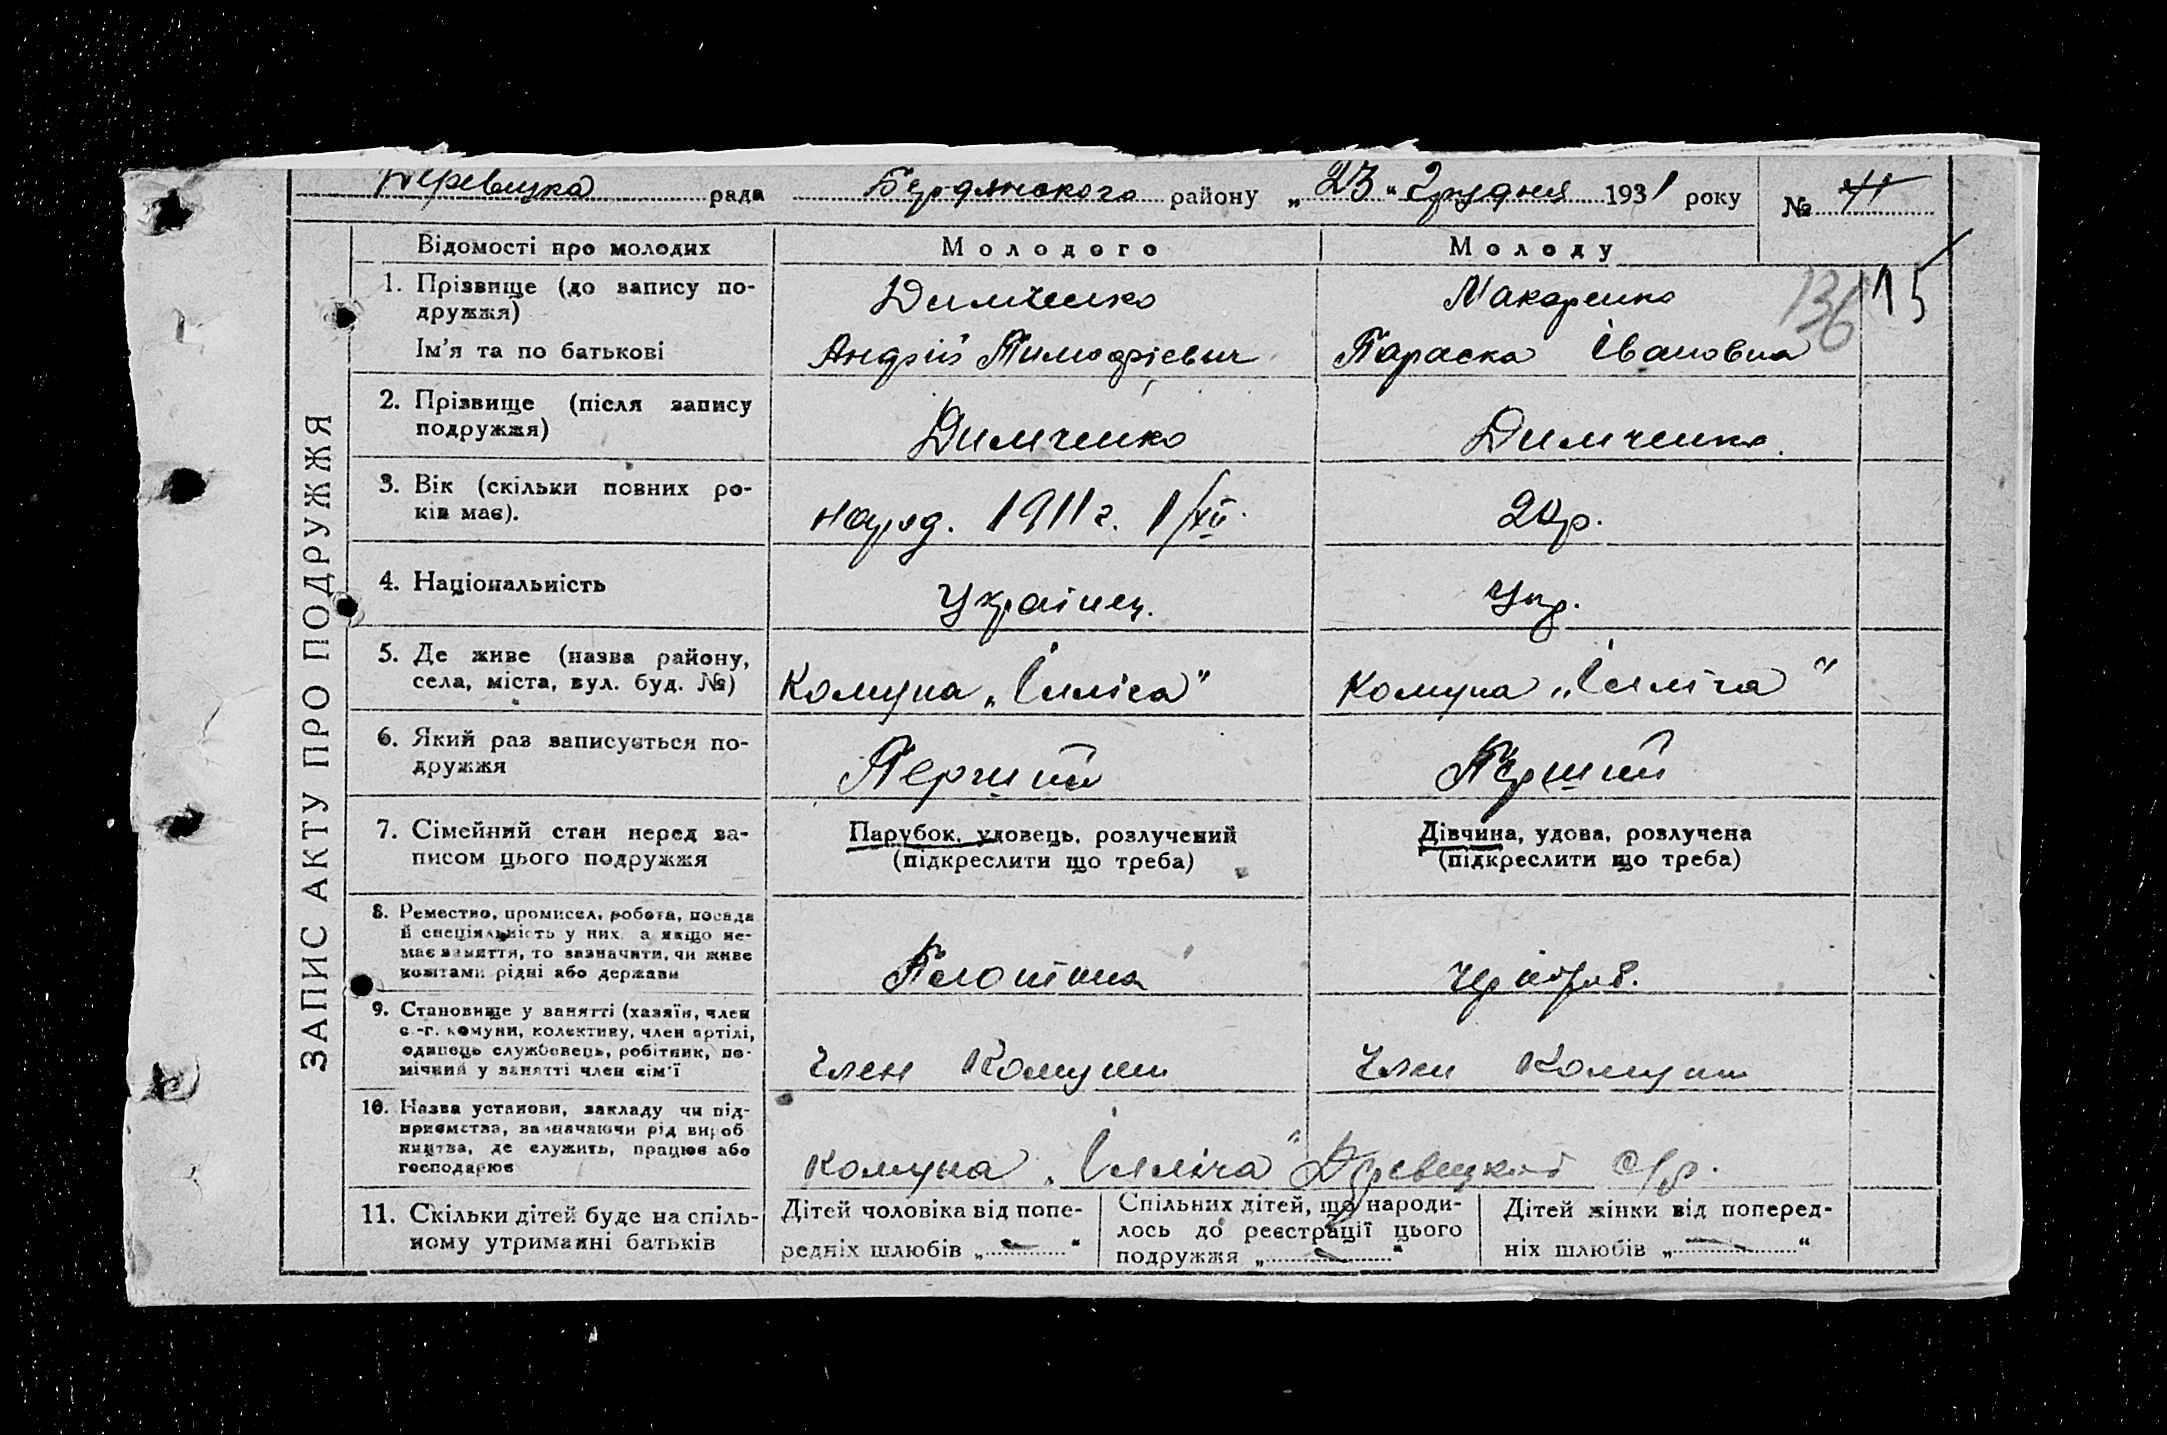 Деревецка рада Бердянского району „23" Грудня 1931 року № 41
Відомості про молодих Молодого Молоду
136 15
1. Прізвище (до запису по- Димченко Макаренко
дружжя)
Ім'я та по батькові Андрій Тимофієвич Параска Івановна
2. Прізвище (після запису Димченко Димченко
подружжя)
3. Вік (скільки повних ро- народ. 1911 г. 1/XII. 20 р.
ків має).
4. Національність Українец. Укр.
5. Де живе (назва району, Комуна „Ілліча" Комуна „Ілліча"
села, міста, вул. буд. №)
6. Який раз записується по- Перший Перший
дружжя
7. Сімейний стан перед за- Парубок, удовець, розлучений Дівчина, удова, розлучена
писом цього подружжя (підкреслити що треба) (підкреслити що треба)
8. Ремество, промисел, робота, посада
й спеціяльність у них, а якщо не-
має заняття, то зазначити, чи живе
коштами рідні або держави
9. Становище у занятті (хазяїн, член
с.-г. комуни, колективу, член артілі,
одинець службовець, робітник, по- Член Комуни Член Комуни
мічний у занятті член сім'ї
10. Назва установи, закладу чи під-
приємства, зазначаючи рід вироб
ництва, де служить, працює або Комуна „Ілліча" Деревецкой с/р.
господарює
11. Скільки дітей буде на спіль- Дітей чоловіка від попе- Спільних дітей, що народи- Дітей жінки від поперед-
ному утриманні батьків редніх шлюбів „—" лось до реєстрації цього ніх шлюбів „—"
подружжя „—"
ЗАПИС АКТУ ПРО ПОДРУЖЖЯ